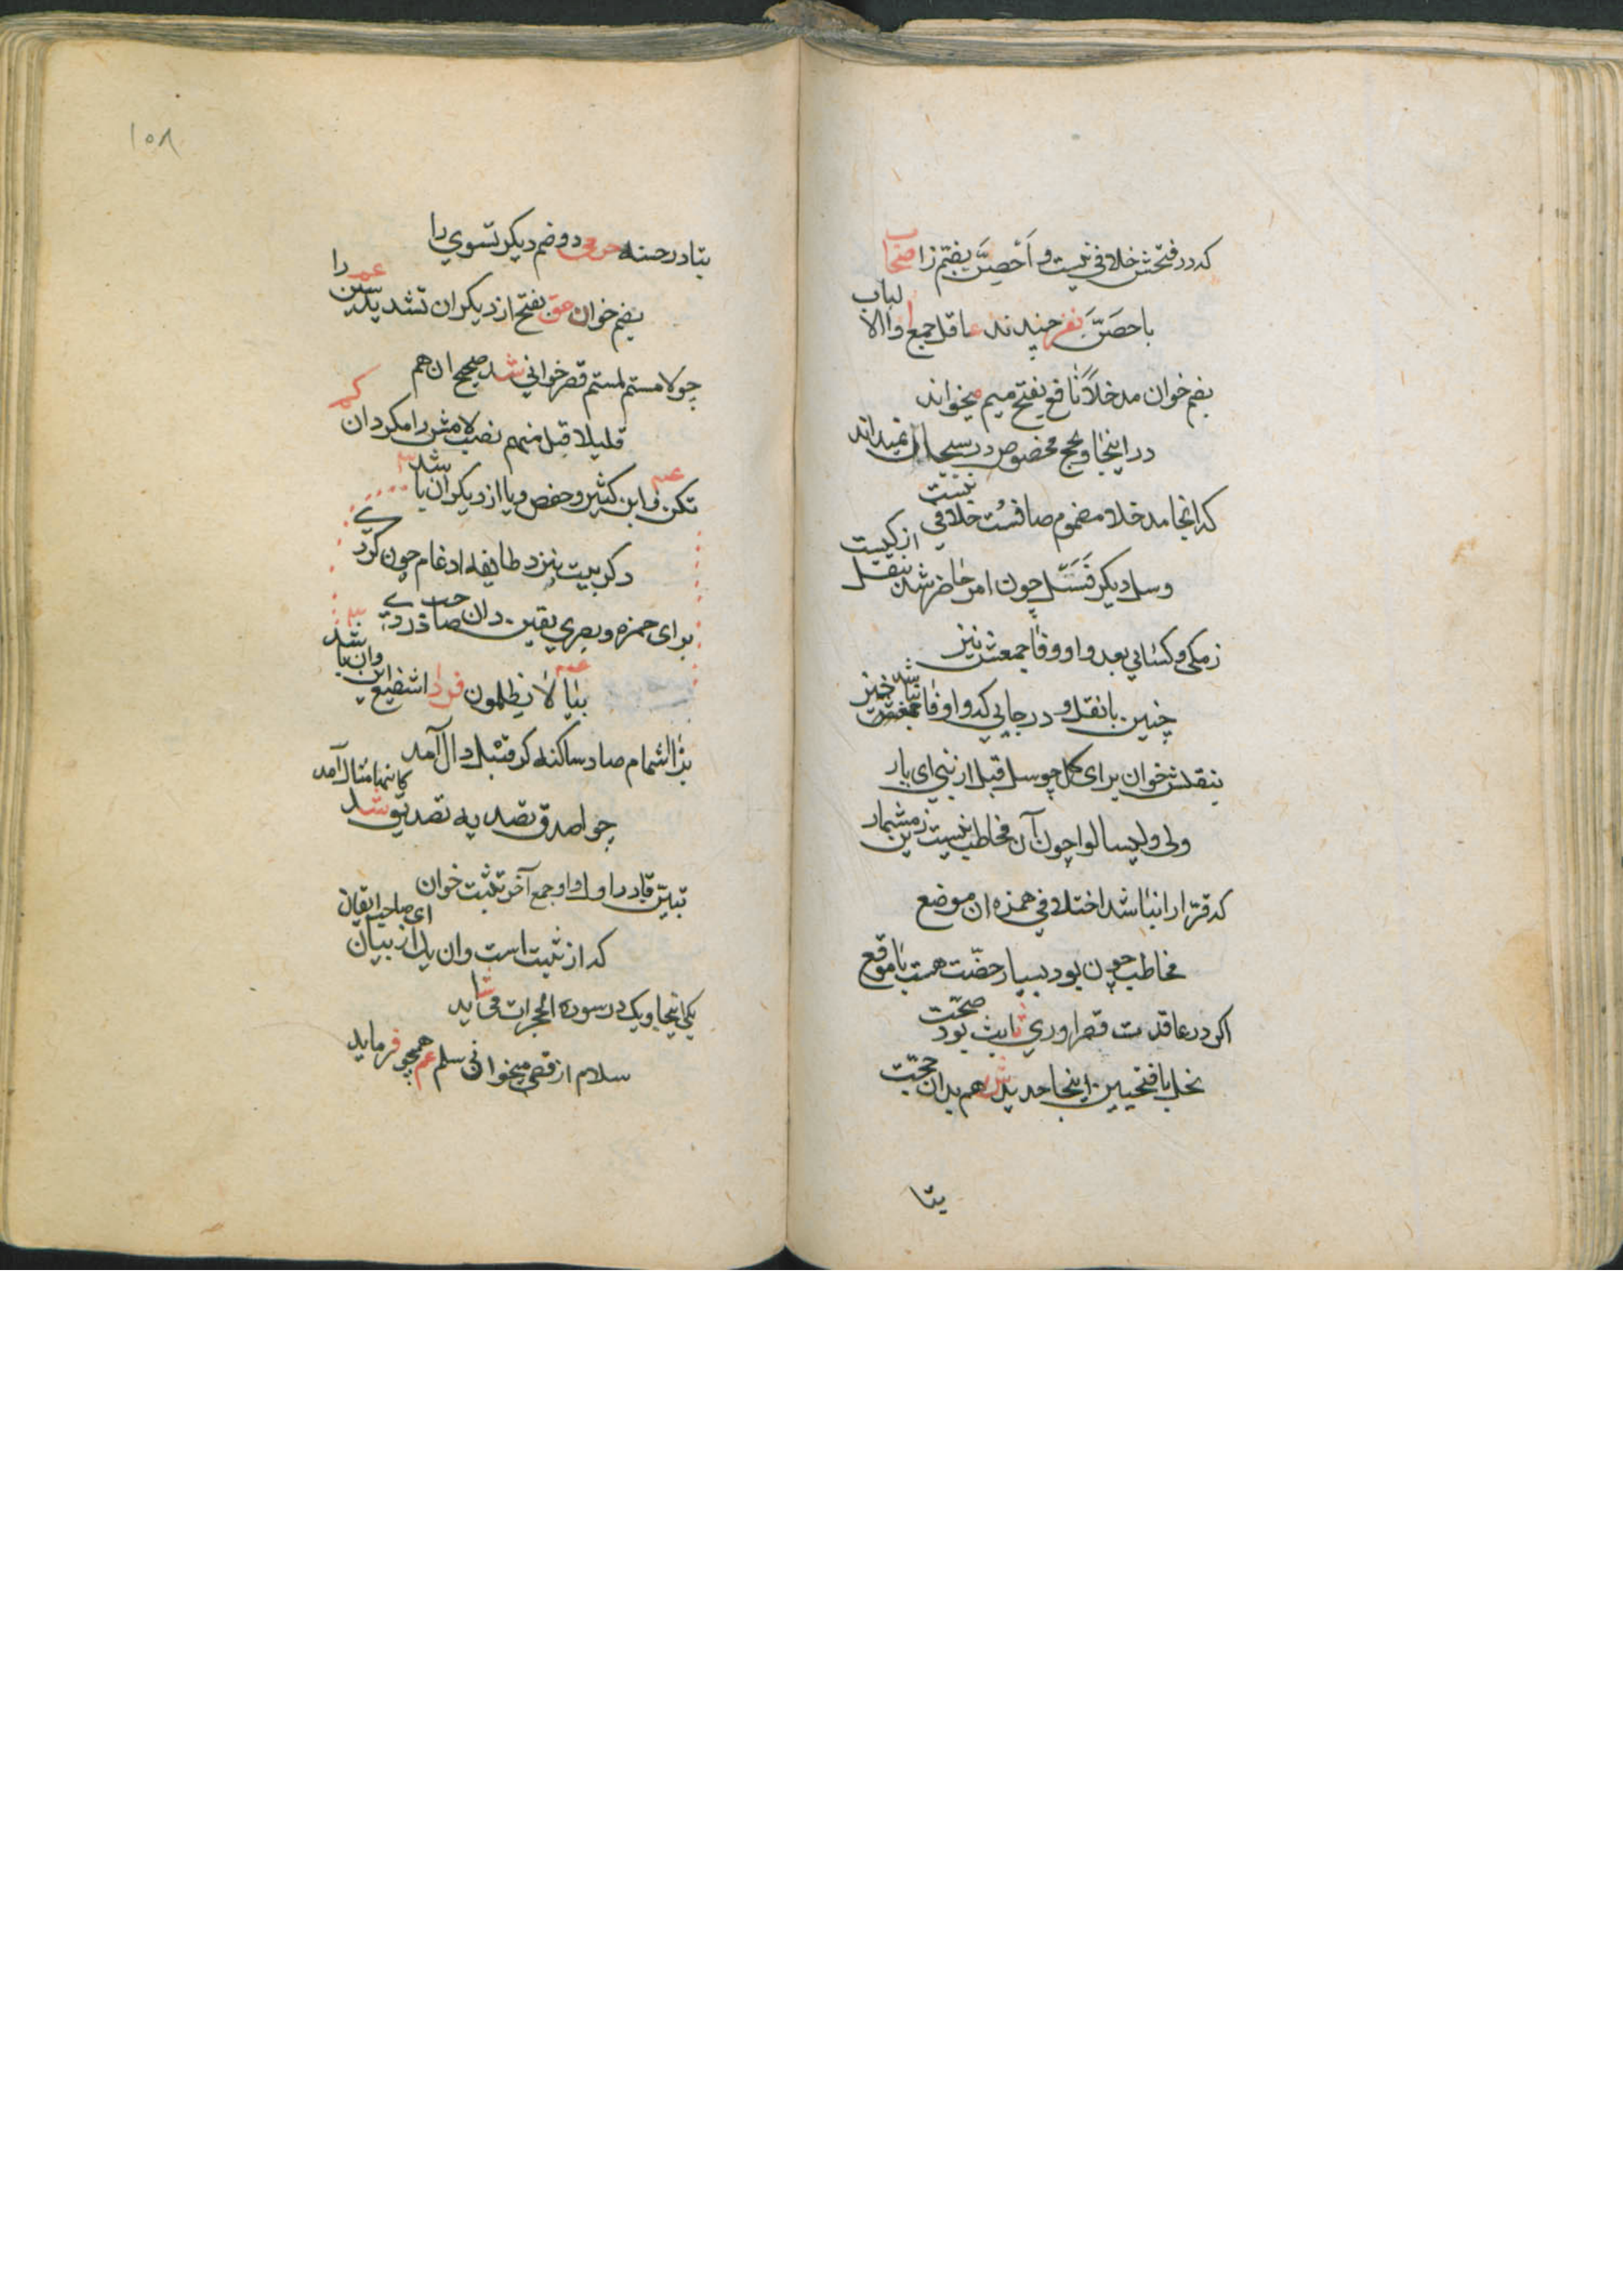 که در فتحش خلافی نیست و اَحْصِنَّ بضم زا صحاب
با حصَنَّ نفر چندند عاقل جمع والا لباب
بضم خوان مدخلاً نافع بفتح میم میخواند
در اینجا و بحج مخصوص در سبحان نمیداند
که انجا مدخلا مضموم صافست خلافی نیست
وسل دیکر فَسَل چون امر حاضر شد بنقل از کیست
ز مکی و کسایی بعد واو و فا جمعش نیز
چنین با نقل و در جایی که واو و فا
بنقلش خوان برای کل چو سل قبل از بنی ای یار
ولی ولیسالوا چون آن مخاطب نیست زین مشمار
که قرّا را نباشد اختلافی همزه ان موضع
مخاطب چون بود بسیار حضّت هست با موقع
اکر در عاقدت قصر اوری ثابت بود صحّت
بخل با فتحیین اینجا حدیدش هم بدان حجّت
یتا
۱۰۸
بتا در حسنه حرمی دو ضم دیکر تسوی را
بضم خوان حق بفتح از دیکران تشدید سین عم را
چو لامستم لمستم قصر خوانی شد صحیح ان هم
قلیلا قبل منهم نصب لامش را مکردان کم
تکن و ابن کثیر و حفص و یا از دیکران یا شد
دکر بیت نزد طایفه ادغام چون کرد
برای حمزه و بصری یقین دان
بیا لا یظلمون فرد اشفیع این وان با شد
بزا اشمام صاد ساکنه کر قبل دال آمد
چو اصدق تصدیه تصدیق شد کاینها مثال آمد
تبیّن قاد را و او جمع آخر تثبت خوان
که از ثبت است وان یک از بیان ای صاحب ایقان
یکی اینجا و یک در سوره الحجرات می شاید
سلام از قصر میخوانی سلم عم همچو فرماید